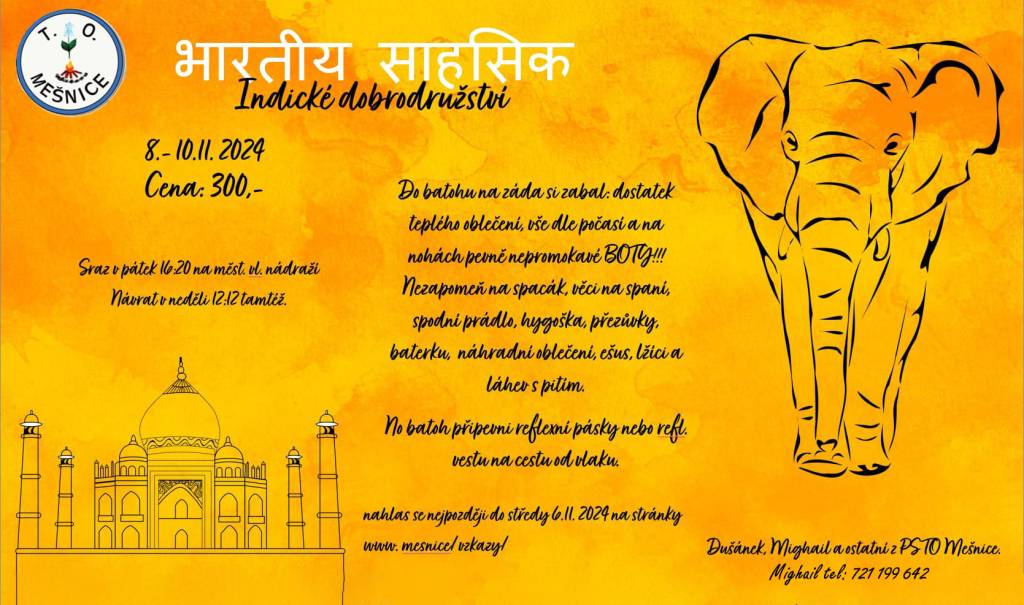 T. O.
MEŠNICE
भारतीय साहसिक
Indické dobrodružství
8.- 10.11. 2024
Cena: 300,-
Sraz v pátek 16:20 na měst. vl. nádraží
Návrat v neděli 12:12 tamtéž.
Do batohu na záda si zabal: dostatek
teplého oblečení, vše dle počasí a na
nohách pevné nepromokavé BOTY!!!
Nezapomeň na spacák, věci na spaní,
spodní prádlo, hygoška, přezůvky,
baterku, náhradní oblečení, ešus, lžíci a
láhev s pitím.
No batoh připevni reflexní pásky nebo refl.
vestu na cestu od vlaku.
nahlas se nejpozději do středy 6.11. 2024 na stránky
www. mesnice/vzkazy/
Dušánek, Mighail a ostatní z PSTO Mešnice.
Mighail tel: 721 199 642